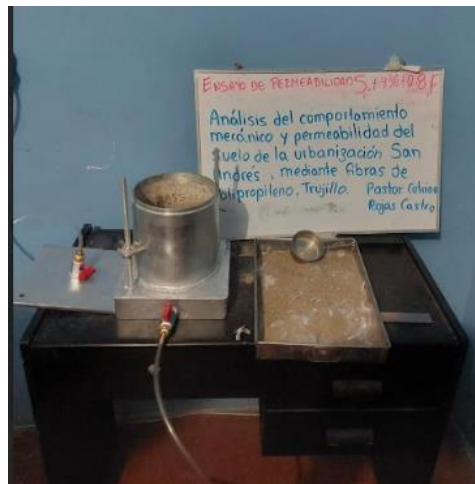 ENSAYO DE PERMEABILIDAD
Análisis del comportamiento
mecánico y permeabilidad del
suelo de la urbanización San
Andrés, mediante fibras de
polipropileno, Trujillo. Pastor
Rojas Castro